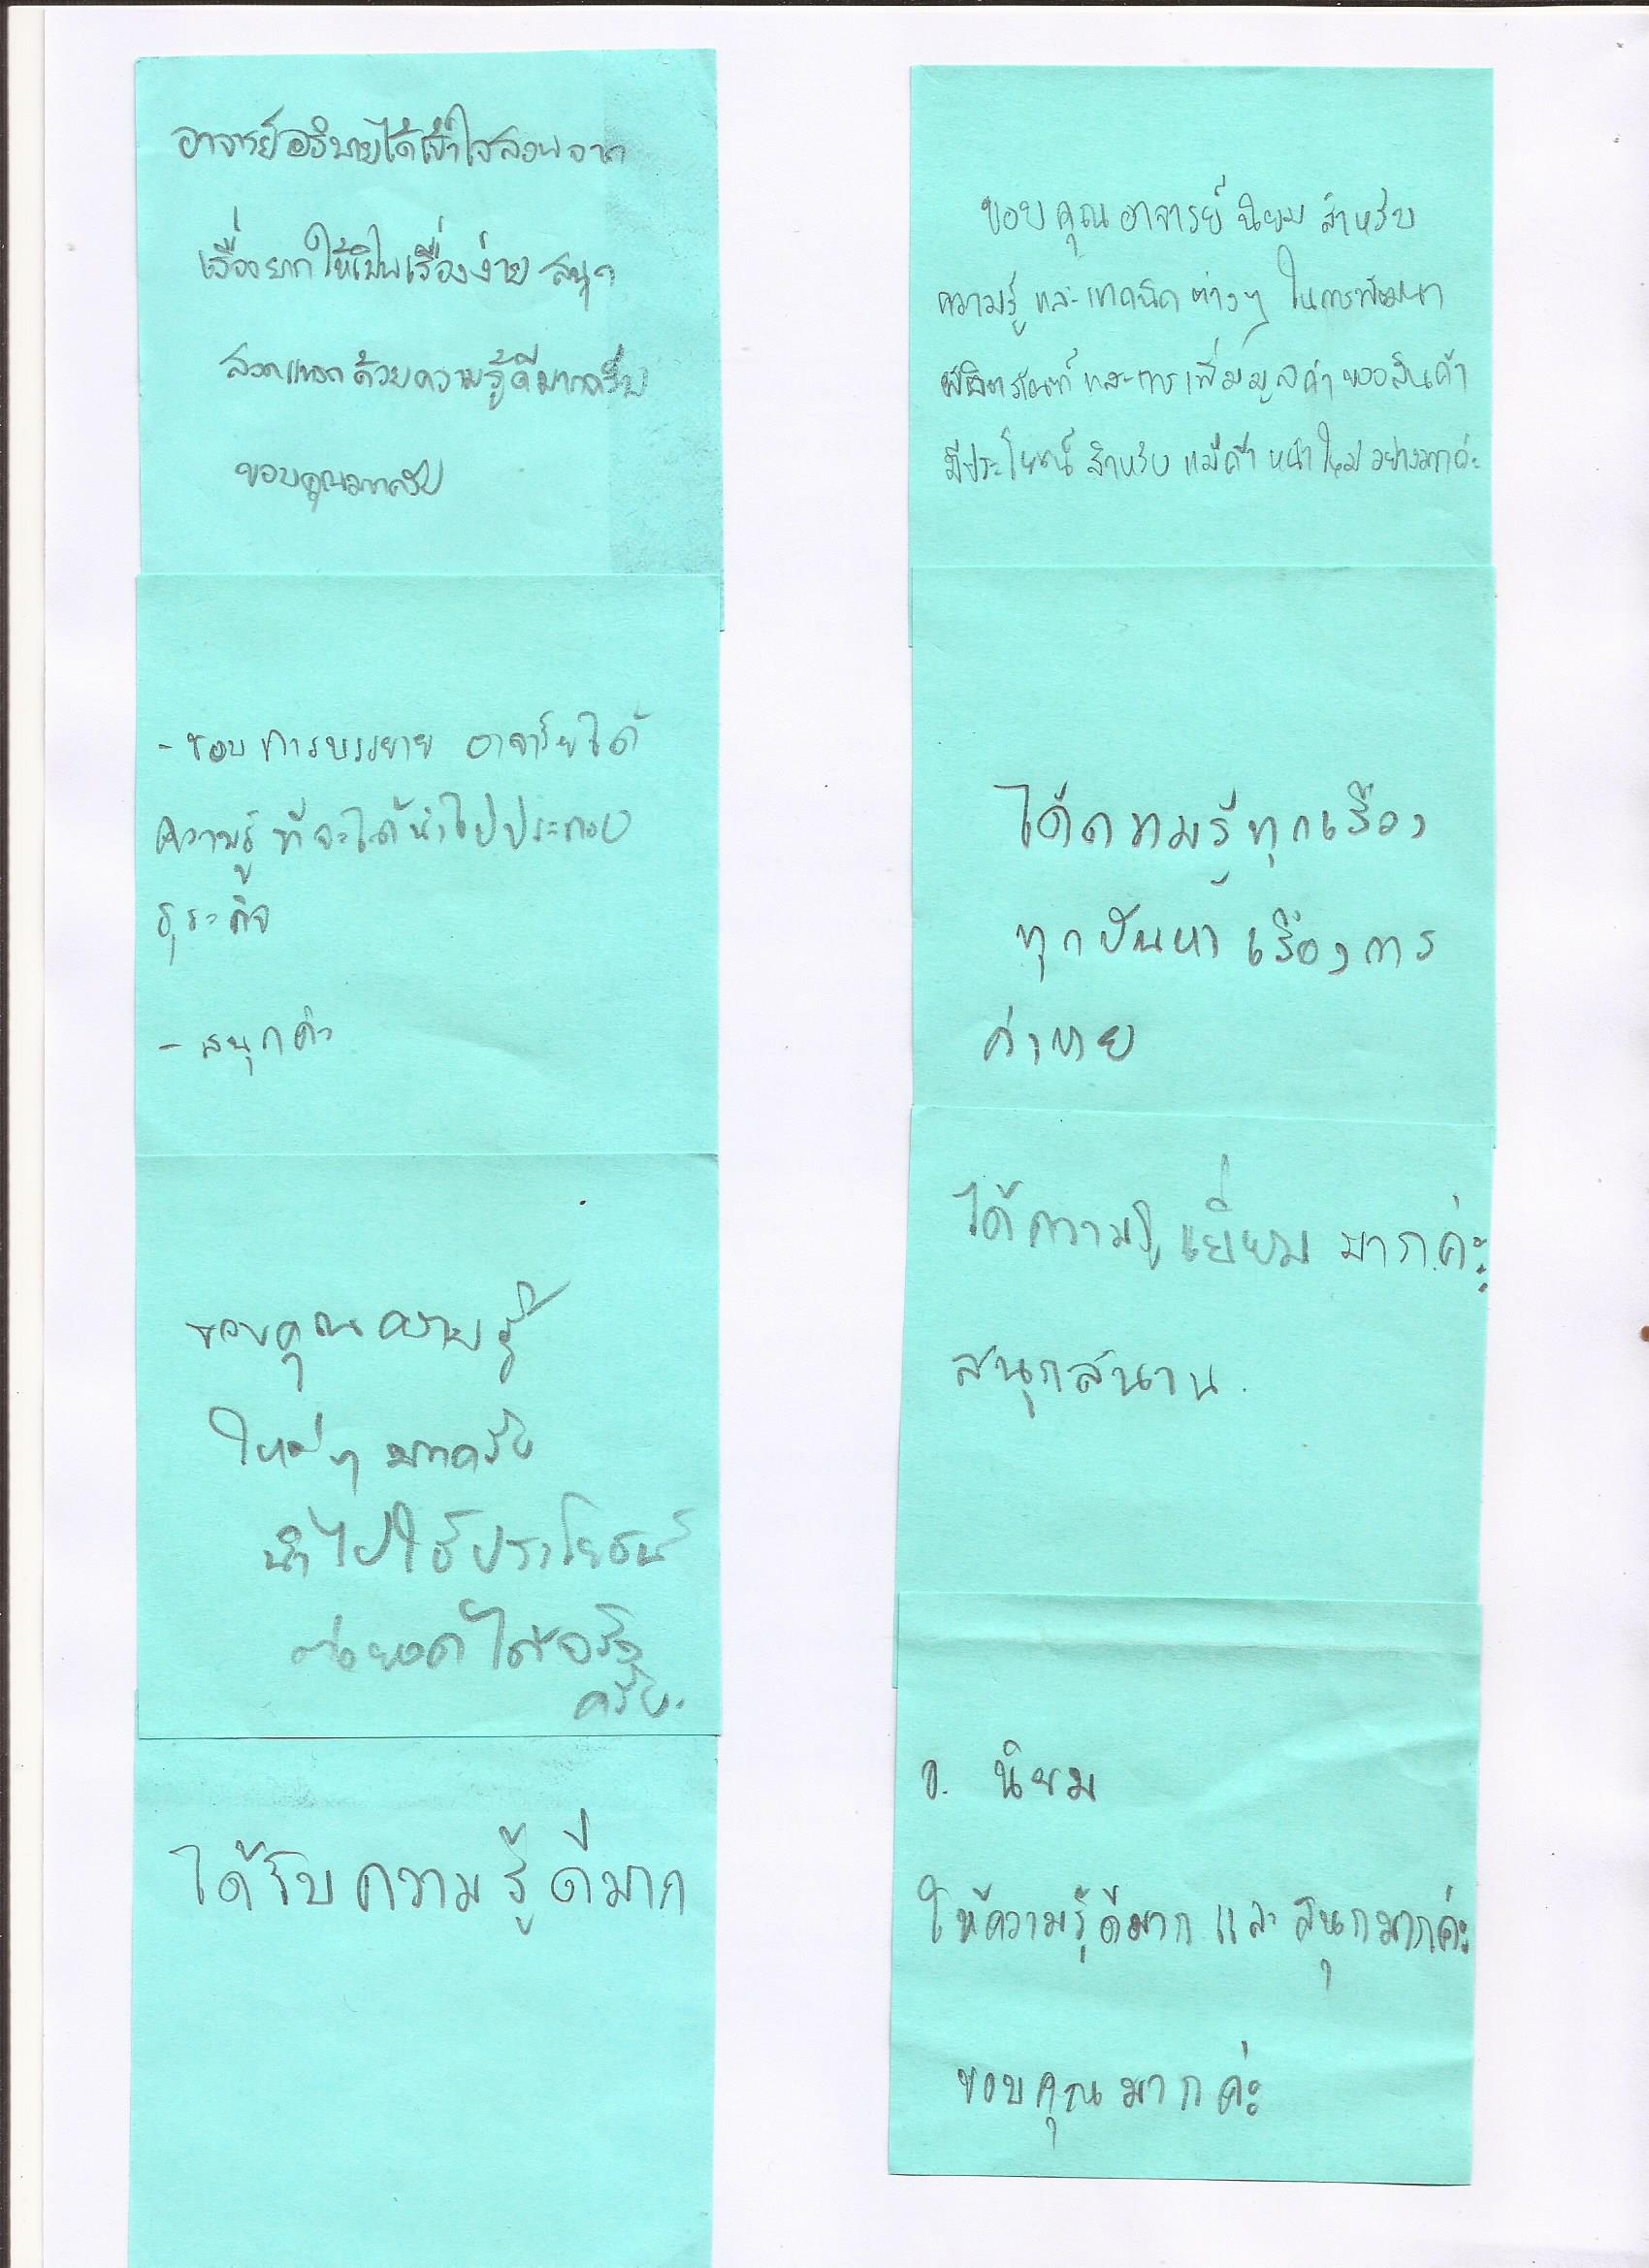 อาจารย์อธิบายได้เข้าใจสอนจาก
เรื่องยากให้เป็นเรื่องง่าย สนุก
สอดแทรกด้วยความรู้ดีมากครับ
ขอบคุณมากครับ
- ชอบการบรรยาย อาจาร์ยได้
ความรู้ ที่จะได้นำไปประกอบ
ธุระกิจ
- สนุกค่ะ
ขอบคุณความรู้
ใหม่ๆ มากครับ
นำไปใช้ประโยชน์
ต่อยอดได้จริง
ครับ.
ได้รับความรู้ดีมาก
ขอบคุณอาจารย์ นิยม สำหรับ
ความรู้ และเทคนิคต่างๆ ในการพัฒนา
ผลิตภัณฑ์ และการเพิ่มมูลค่า ของสินค้า
มีประโยชน์ สำหรับ แม่ค้า หน้าใหม่ อย่างมากค่ะ
ได้ความรู้ทุกเรื่อง
ทุกปันหา เรื่องการ
ค้าขาย
ได้ความรู้ เยี่ยม มากค่ะ
สนุกสนาน.
อ. นิยม
ให้ความรู้ดีมาก และ สนุกมากค่ะ
ขอบคุณมากค่ะ